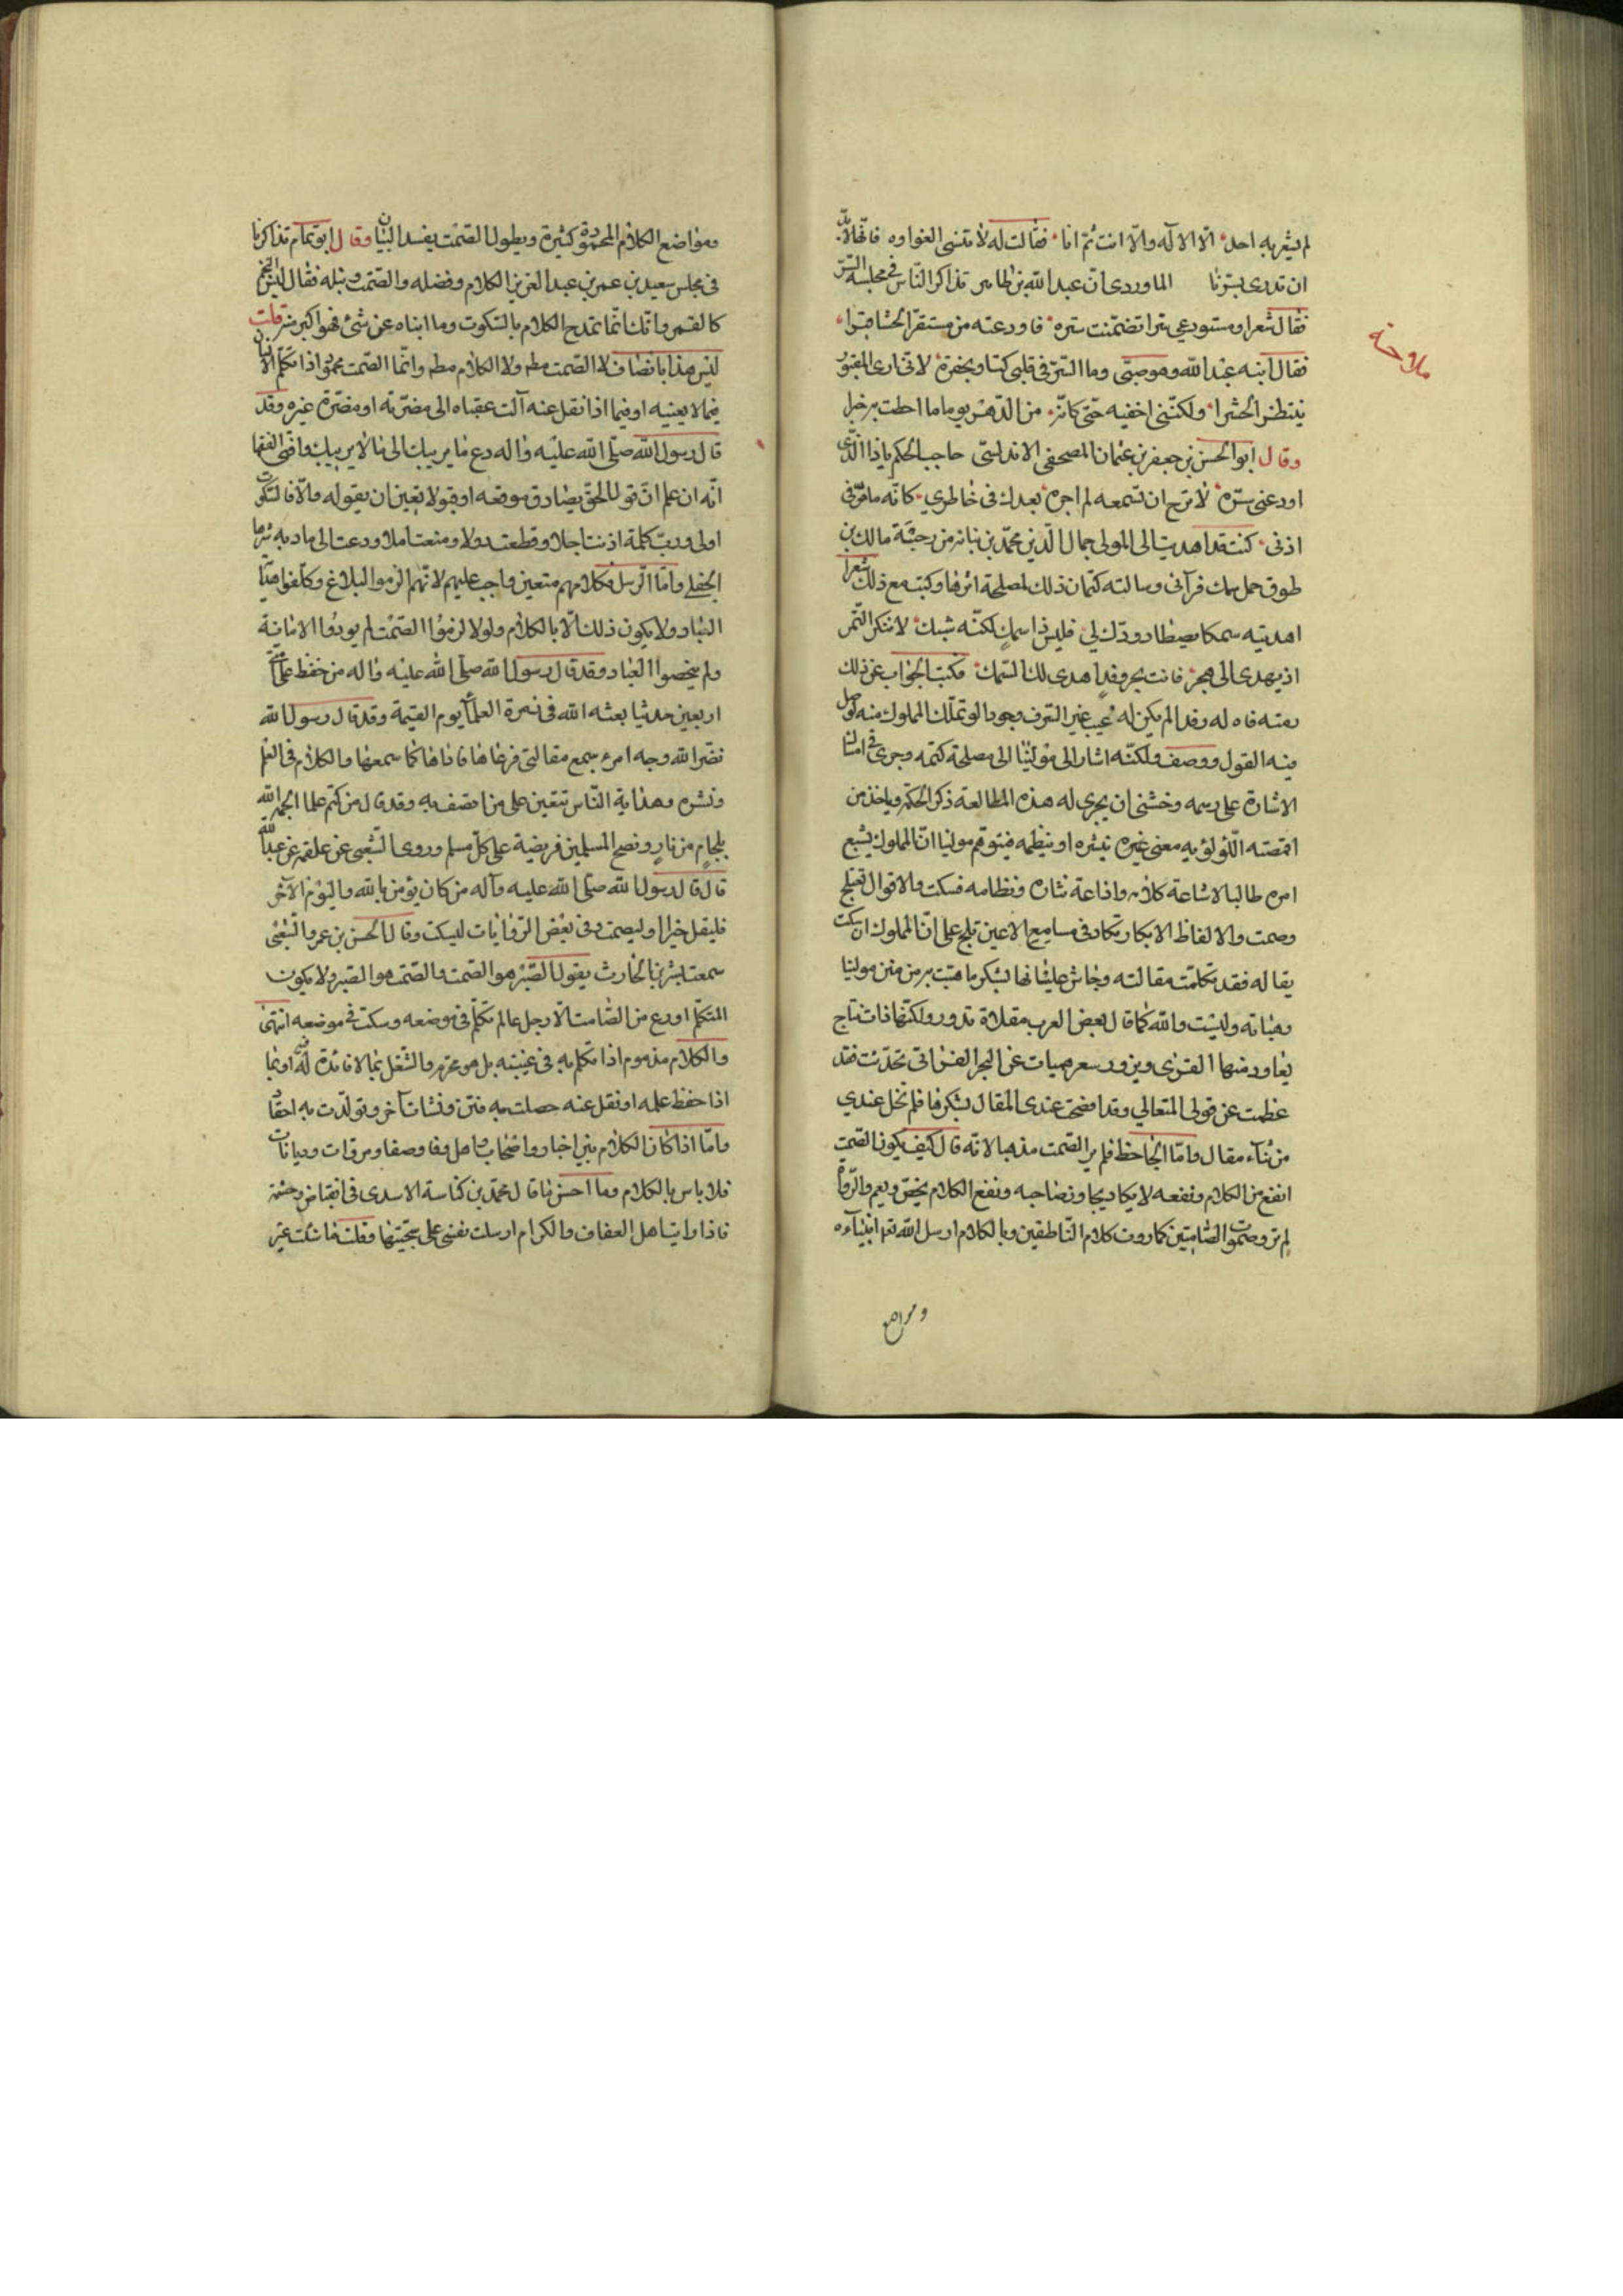 لم يشعر به احد الّا الاله والّا انت ثمّ انا فقالت له لا تنسى الغواوه فانّها لابدّ
ان تدرى بسرّنا الماوردى انّ عبد اللّه بن طاهر تذاكر النّاس فى مجلسه السّر
فقال شعرا ومستودعي سرا تضمّنت ستره فاودعته من مستقرّ الحشا قبرا
فقال ابنه عبد اللّه وهو صبىّ وما السّرّ فى قلبى كثاو بحفرة لانّى ارى المقبور
ينتظر الحشرا ولكنّنى اخفيه حتّى كانّنى من الدّهر يوما ما احطت به خبرا
وقال ابو الحسن بن جعفر بن عثمان المصحفى الاندلسى حاجب الحكم ياذا الّذى
اودعنى سرّه لا ترج ان تسمعه لم اجره بعدك فى خاطري كانّه ما مرّ فى
اذنى كنت قد اهديت الى المولى جمال الدّين محمّد بن نباتة من رحبة مالك بن
طوق حمل سمك فرآنى وسالته كتمان ذلك لمصلحة اثرها وكتبت مع ذلك شعرا
اهديته سمكا يصطاد ودّك لي فليس ذا سمك لكنّه شبك لا تنكر التّمر
اذ يهدى الى هجر فانت بحر وقد اهدى لك السّمك فكتب الجواب عن ذلك
فيه القول ووصف ولكنّه اشار الى مولينا الى مصلحة كتمه وجرى فى امتثال
الاشارة على رسمه وخشى ان يجرى له هذه المطالعة ذكر الحكم وياخذ من
اقتصته اللّؤلؤيه معنى غيره ينثره او ينظمه فيتوهّم مولينا انّ المملوك يشبع
امره طالبا لاشاعة كلامه واذاعة نثاره ونظامه فسكت والاقوال تعتلج
وصمت والالفاظ الابكار تكاد فى مسامع الاعين تلج على انّ المملوك ان سكت
يقاله فقد تكلمت مقالته وجاش عليانها بشكر ما هبت به من منن مولينا
وهباته وليست واللّه كما قال بعض العرب مقلاة تدور ولكنّها ذات نتاج
عظمت عن قولى المتعالي وقد افضحت عندى المقال بشكرها فلم تخل عندي
من ثناء مقال وامّا الجاحظ فلم ير الصّمت مذهبا لانّه قال كيف يكون الصّمت
انفع من الكلام ونفعه لا يكاد يجاوز صاحبه ونفع الكلام يخصّ ويعم والرّواة
لم ترو صموت الصّامتين كما روت كلام النّاطقين وبالكلام ارسل اللّه تعم انبياءه
ومواضع
ومواضع الكلام المحمودة كثيرة وبطول الصّمت يفسد البيان وقال ابو تمام تذاكرنا
فى مجلس سعيد بن عمر بن عبد العزيز الكلام وفضله والصّمت ونبله فقال ليس النجم
كالقمر وانّك انّما تمدح الكلام بالسّكوت وما ابناه عن شئ فهو اكبر منه قلت
ليس هذا بانصاف لا الصّمت مطه ولا الكلام مطه وانّما الصّمت محمود اذا تكلّم الانسان
فيما لا يعنيه او فيما اذا نقل عنه آلت عقباه الى مضرّته او مضرّة غيره وقد
قال رسول اللّه صلّى اللّه عليه واله دع ما يريبك الى ما لا يريبك وافتى الفقها
انّه ان علم انّ قول الحق يصادق موقعه او قبولا تعين ان يقوله والّا فالسّكوت
اولى وربّ كلمة اذنت اجلا وقطعت دولا ومنعت املا ودعت الى مادبة شرها
الجفلى وامّا الرّسل فكلامهم متعين واجب عليهم لانّهم الزموا البلاغ وكلّفوا هداية
العباد ولا يكون ذلك الّا بالكلام ولو لا لزموا الصّمت لم يودّوا الامانة
ولم ينصحوا العباد وقد قال رسول اللّه صلّى اللّه عليه واله من حفظ على امّتى
اربعين حديثا بعثه اللّه فى زمرة العلماء يوم القيمة وقد قال رسول اللّه
نضّر اللّه وجه امرء سمع مقالتى فوعاها فاداها كما سمعها والكلام فى العلم
ونشره وهداية النّاس تتعين على من اتصف به وقد قال من كتم علما الجمه اللّه
بلجام من نار ونصح المسلمين فريضة على كلّ مسلم وروى الشّعبى عن علقمه عن عبد اللّه
قال قال رسول اللّه صلّى اللّه عليه وآله من كان يؤمن باللّه واليوم الآخر
فليقل خيرا او ليصمت وفى بعض الرّوايات ليسكت وقال الحسن بن عمر والشّعبى
سمعت بشر بن الحارث يقول الصّبر هو الصّمت والصّمت هو الصّبر ولا يكون
المتكلّم اورع من الصّامت الّا رجل عالم تكلّم فى موضعه وسكت فى موضعه انتهى
والكلام مذموم اذا تكلم به فى غيبته بل هو محرّم والشّغل بما لا فائدة فيه او بما
اذا حفظ علمه او نقل عنه حصلت به فتن ونشات آخر وتولّدت به احقاد
وامّا اذا كان الكلام بين اخبار واصحاب واهل وفا وصفا ومروات وديانات
فلا باس بالكلام وما احسن ما قال محمّد بن كناسة الاسدى فى انقباض وحشمة
فاذا رايت اهل العفاف والكرام ارسلت نفسى على سجيّتها وقلت ما شئت غير